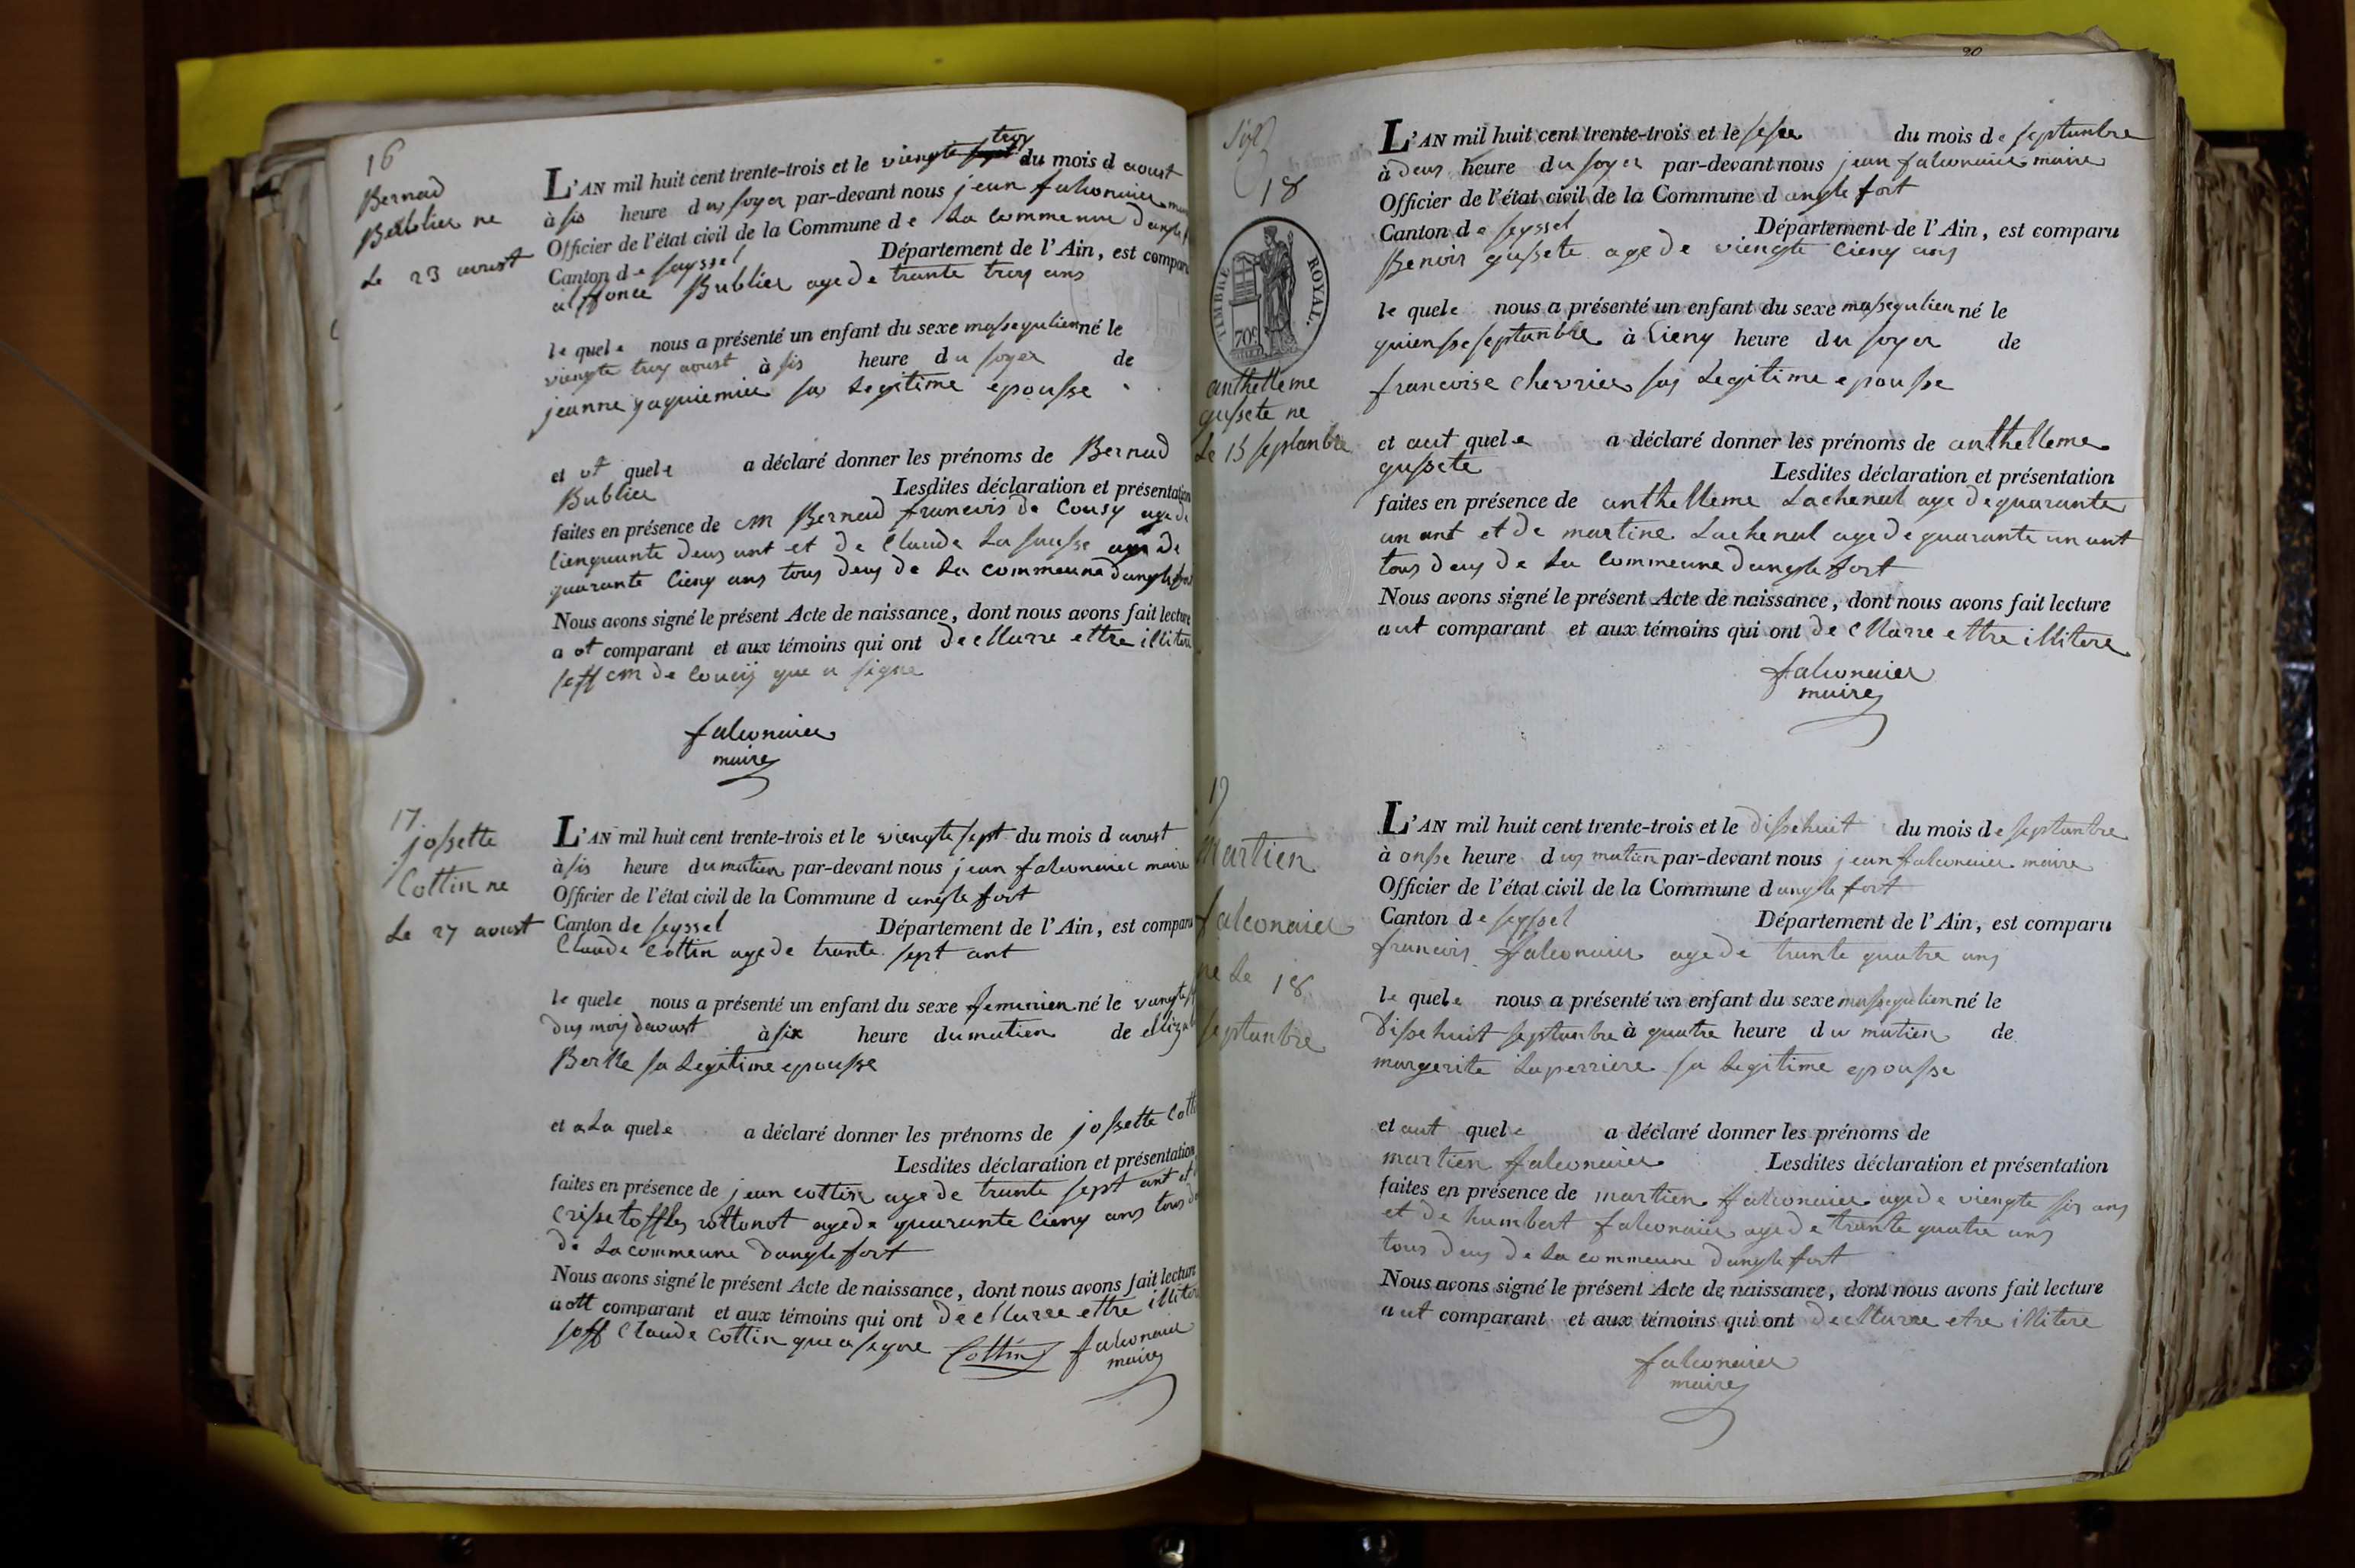 16
Bernad
Bublier ne
Le 23 avoust
L'AN mil huit cent trente-trois et le viengte troy du mois d avoust
à sis heure dus soyer par-devant nous jean falconnier
Officier de l'état civil de la Commune de La commeune
Canton de seyssel Département de l'Ain, est comparu
Bublier age de trante troy ans
le quele nous a présenté un enfant du sexe massegulien né le
viengte troy aoust à sis heure du soyer de
jeanne sa Legitime epousse
et ot quele a déclaré donner les prénoms de Bernad
Bublier Lesdites déclaration et présentation
faites en présence de Bernad francois de Cousy age de
cienquante deus ant et de Claude La age de
quarante cienq ans tous deus de La commeune danglefort
Nous avons signé le présent Acte de naissance, dont nous avons fait lecture
a ot comparant et aux témoins qui ont decllarre ettre illitere
soff de coucij que a signe
falconnier
maire
17
jossette
Cottin ne
Le 27 avoust
L'AN mil huit cent trente-trois et le viengte sept du mois d avoust
à sis heure du matien par-devant nous jean falconnier maire
Officier de l'état civil de la Commune d anglefort
Canton de seyssel Département de l'Ain, est comparu
Claude Cottin age de trante sept ant
le quele nous a présenté un enfant du sexe feminien né le
dus mois davoust à six heure du matien de
sa Legitime epousse
et a La quele a déclaré donner les prénoms de jossette
Lesdites déclaration et présentation
faites en présence de jean cottin age de trante sept ant et
age de quarante cienq ans tous
de La commeune danglefort
Nous avons signé le présent Acte de naissance, dont nous avons fait lecture
a ott comparant et aux témoins qui ont decllarre ettre
soff Claude Cottin que a segne Cottin falconnier
maire
20
18
TIMBRE ROYAL.
70c
anthelleme
gussete ne
Le 15 septanbre
L'AN mil huit cent trente-trois et le sesse du mois de septanbre
à deus heure du soyer par-devant nous jean falconnier maire
Officier de l'état civil de la Commune d anglefort
Canton de seyssel Département de l'Ain, est comparu
Benois gussete age de viengte cienq ans
le quele nous a présenté un enfant du sexe massegulien né le
quiensse septanbre à cienq heure du soyer de
francoise chevrier sas Legitime epousse
et aut quele a déclaré donner les prénoms de anthelleme
gussete Lesdites déclaration et présentation
faites en présence de anthelleme Lachenal age de quarante
un ant et de martine Lachenal age de quarante un ant
tous deus de La commeune danglefort
Nous avons signé le présent Acte de naissance, dont nous avons fait lecture
aut comparant et aux témoins qui ont decllarre ettre illitere
falconnier
maire
19
Martien
falconnier
ne Le 18
septanbre
L'AN mil huit cent trente-trois et le dissehuit du mois de septanbre
à onsse heure dus matien par-devant nous jean falconnier maire
Officier de l'état civil de la Commune d anglefort
Canton de seyssel Département de l'Ain, est comparu
francois falconnier age de trante quatre ans
le quele nous a présenté un enfant du sexe massegulien né le
dissehuit septanbre à quatre heure du matien de
margerite Laperriere sa Legitime epousse
et aut quele a déclaré donner les prénoms de
martien falconnier Lesdites déclaration et présentation
faites en présence de martien falconnier age de viengte sis ans
et de humbert falconnier age de trante quatre ans
tous deus de La commeune danglefort
Nous avons signé le présent Acte de naissance, dont nous avons fait lecture
aut comparant et aux témoins qui ont decllarre etre illitere
falconnier
maire